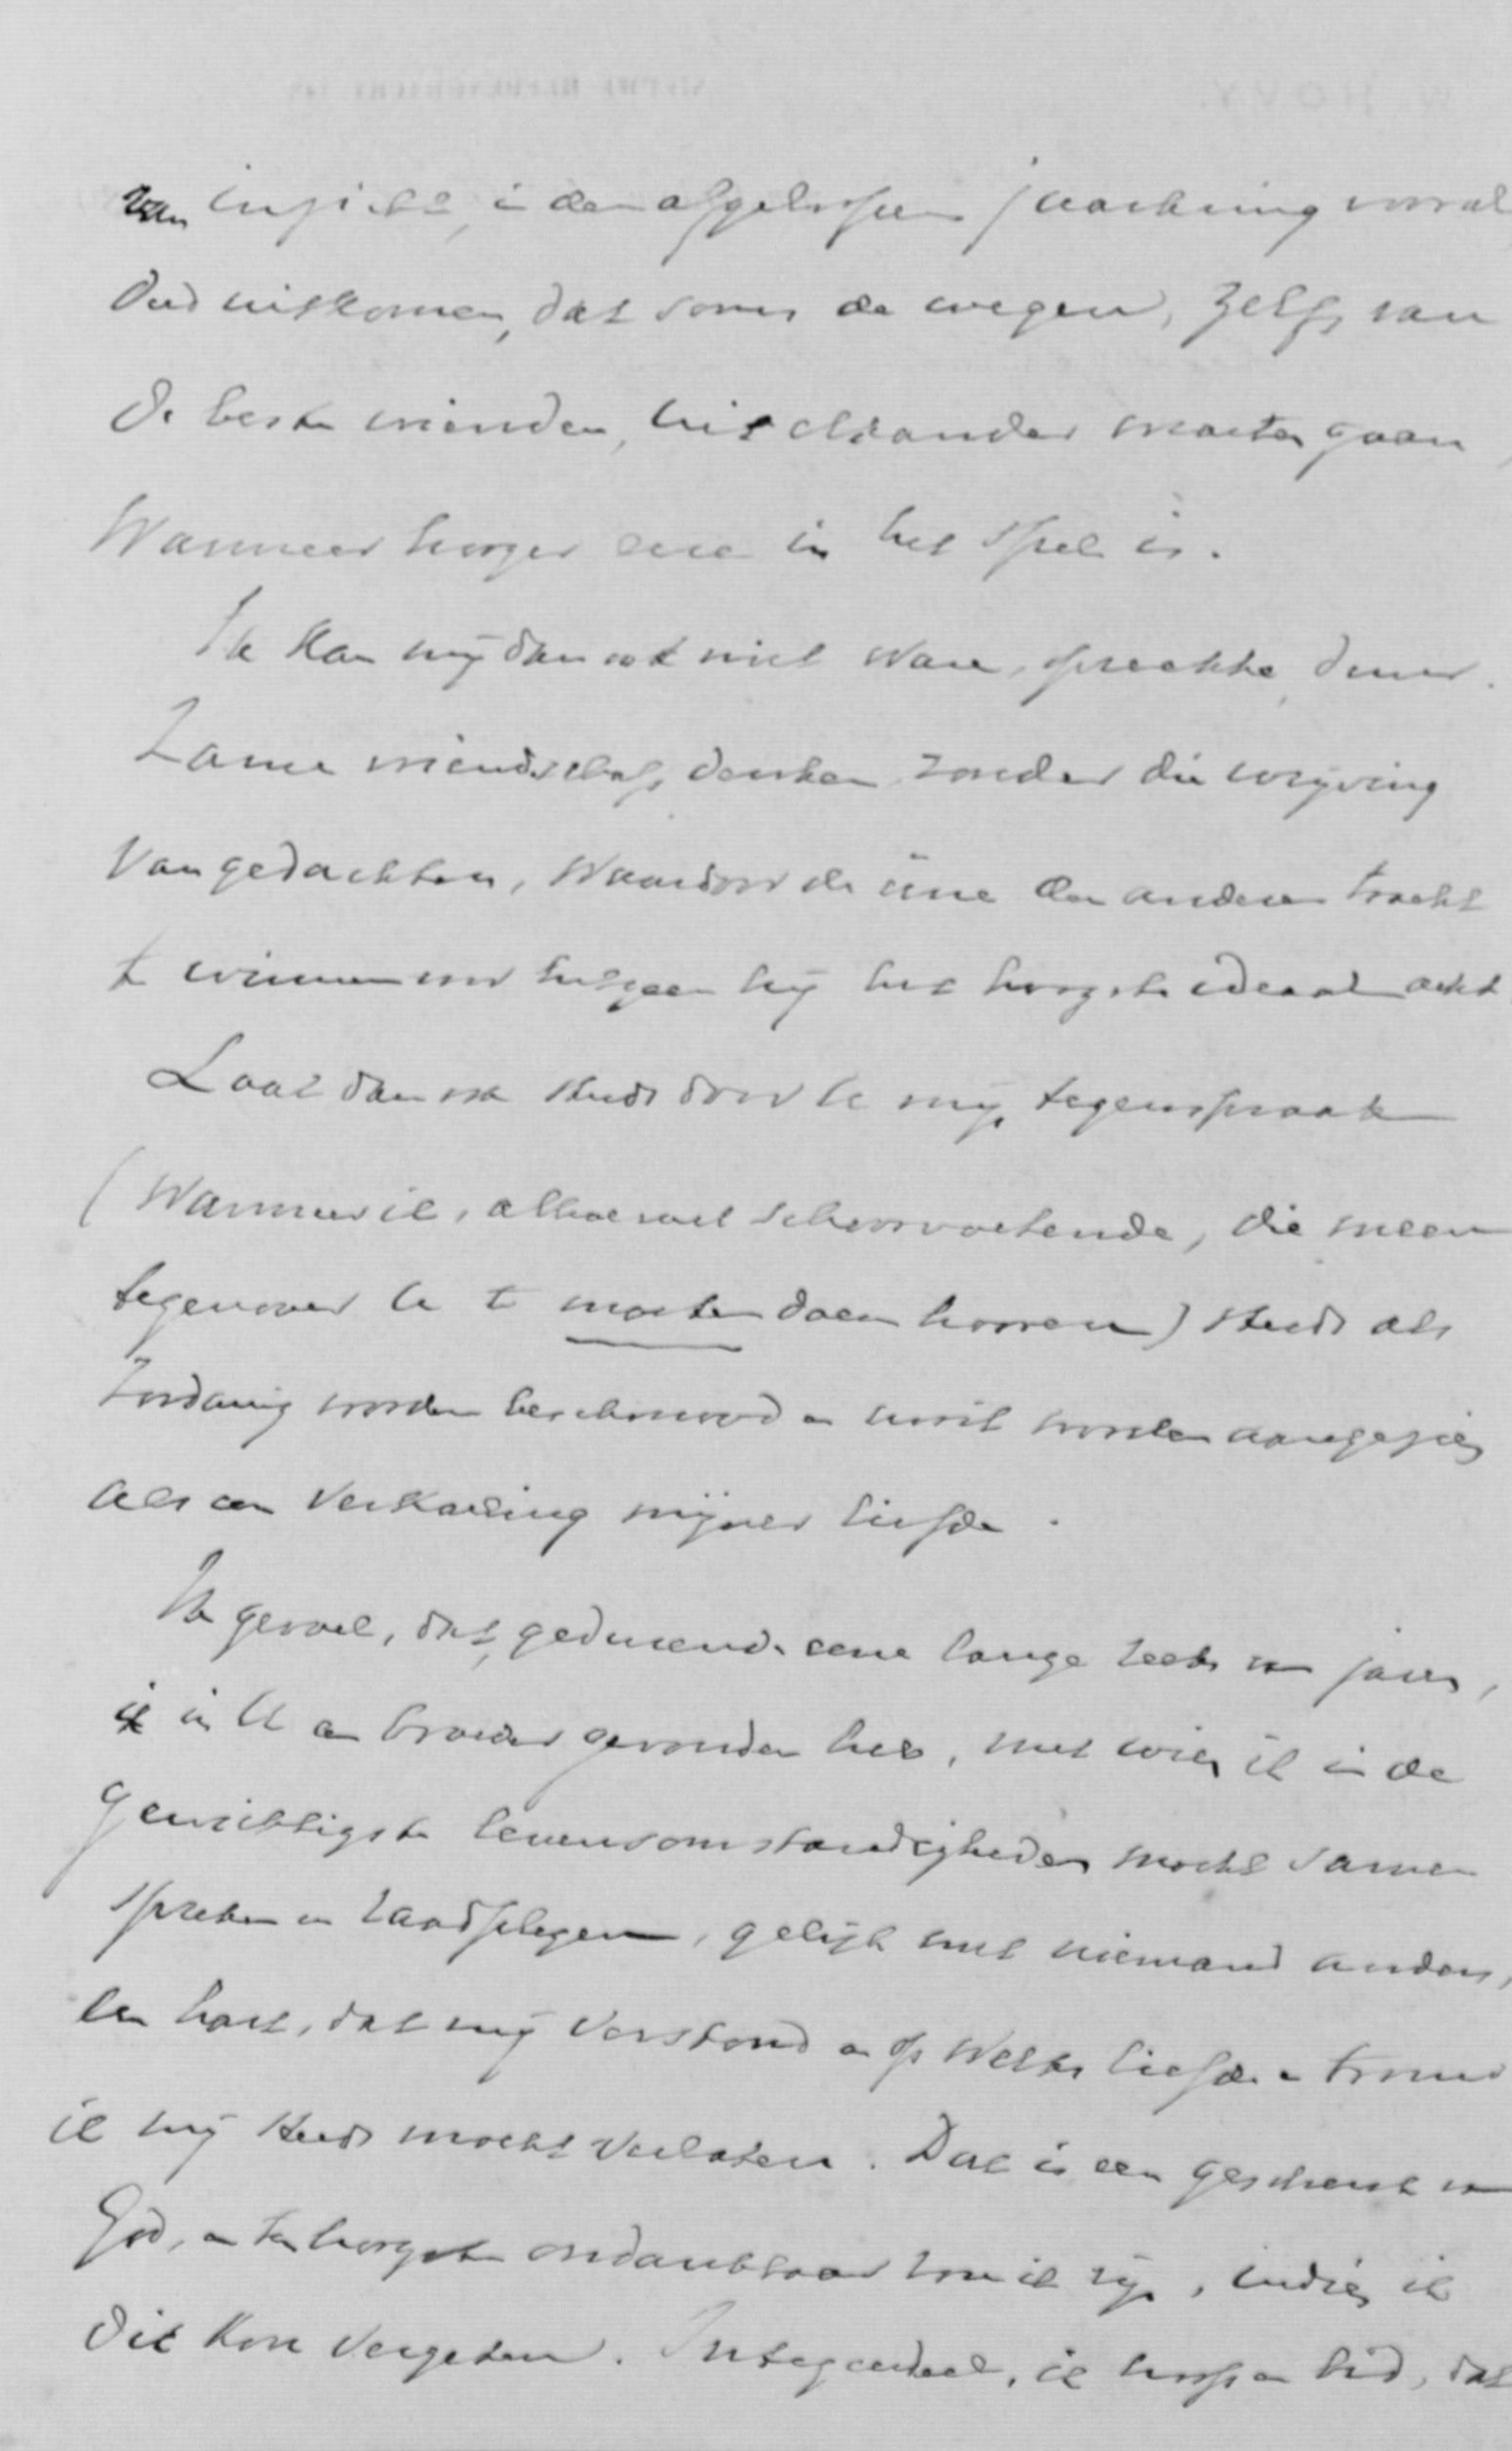 van inzicht, in den afgeloopen jaarkring vooral
deed uitkomen, dat soms de wegen, zelfs van
de beste vrienden, uit elkander moeten gaan,
Wanneer hooger eere in het spel is.
Ik kan mij dan ook niet ware, oprechte, duur-
zame vriendschap, denken zonder die wrijving
van gedachten, Waardoor de eene den anderen tracht
te winnen voor hetgeen hij het hoogste ideaal acht
Laat dan ook steeds door U mijn tegenspraak
(Wanneer ik, alhoewel schoorvoetende, die meen
tegenover U te moeten doen hooren) steeds als
zoodanig worden beschouwd en nooit worden aangezien
als een verkoeling mijner liefde.
Ik gevoel, dat, gedurende eene lange reeks van jaren,
ik in U een broeder gevonden heb, met wien ik in de
gewichtigste levensomstandigheden mocht samen
spreken en raadplegen, gelijk met niemand anders,
een hart, dat mij verstond en op welks liefde en trouw
ik mij steeds mocht verlaten. Dat is een geschenk van
God, en ten hoogste ondankbaar zou ik zijn, indien ik
dit kon vergeten. Integendeel, ik hoop en bid, dat